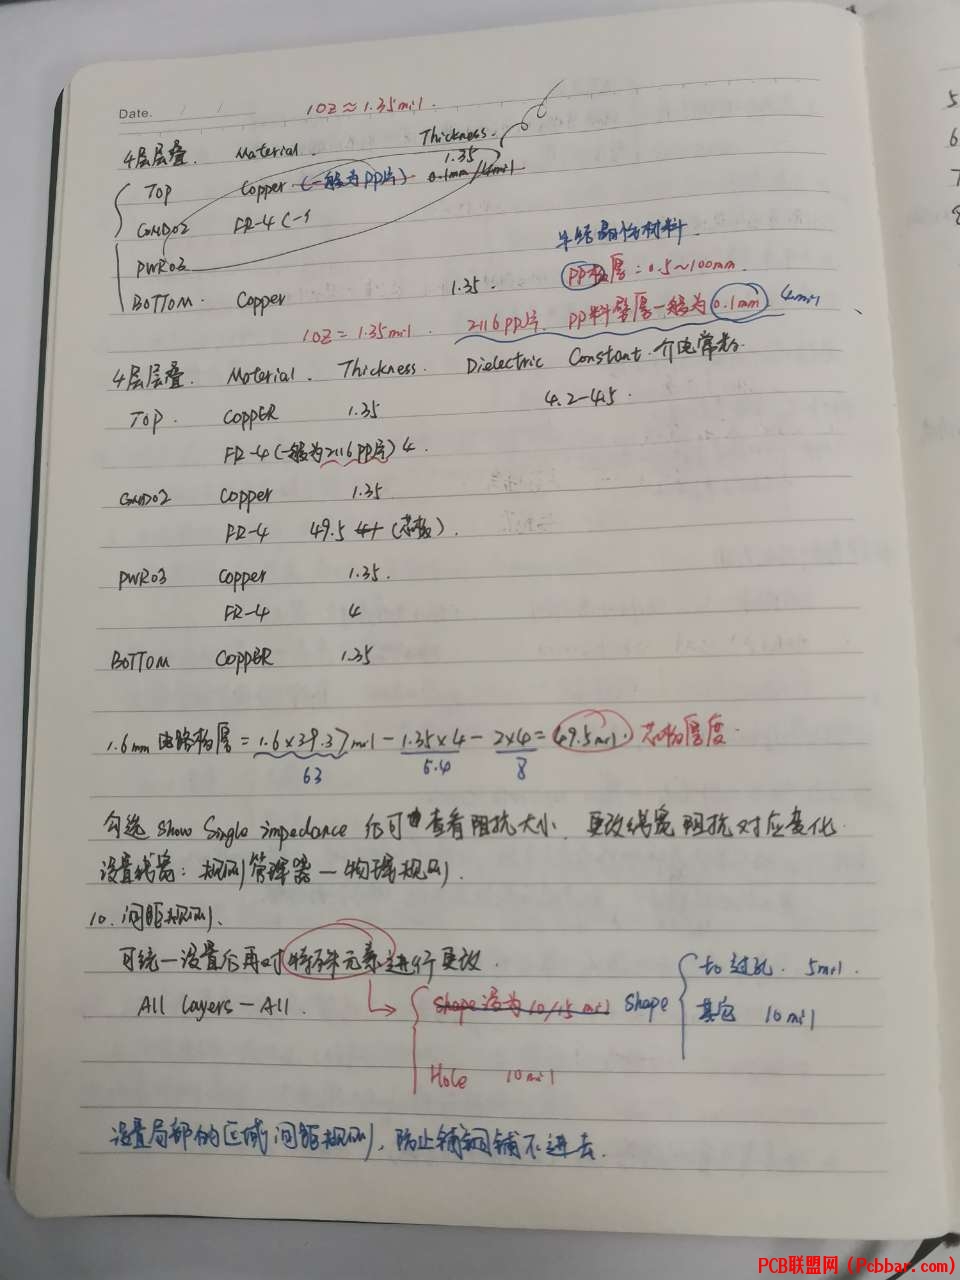 Date. / /
1OZ≈1.35mil.
4层层叠. Material. Thickness.
1.35
TOP Copper (一般为PP片) 0.1mm/4mil
GND02 FR-4 (一
PWR03
半结晶性材料
BOTTOM. Copper 1.35. PP板厚:0.5~100mm.
1OZ=1.35mil. 2116PP片. PP料壁厚一般为0.1mm 4mil
4层层叠. Material. Thickness. Dielectric Constant. 介电常数.
TOP. COPPER 1.35 4.2-4.5.
FR-4(一般为2116PP片) 4.
GND02 Copper 1.35
FR-4 49.5 (芯板).
PWR03 Copper 1.35.
FR-4 4
BOTTOM COPPER 1.35
1.6mm电路板厚=1.6×39.37mil-1.35×4-2×4=49.5mil. 芯板厚度.
63 5.4 8
勾选 Show Single impedance 后可查看阻抗大小. 更改线宽 阻抗对应变化.
设置线宽: 规则管理器-物理规则.
10. 间距规则.
可统一设置后再对特殊元素进行更改.
All Layers-All.
Shape设为10/15mil
Shape to过孔. 5mil.
其它 10mil
Hole 10mil
设置局部的区域间距规则, 防止铺铜铺不进去.
PCB联盟网（Pcbbar.com）
5
6
7
8